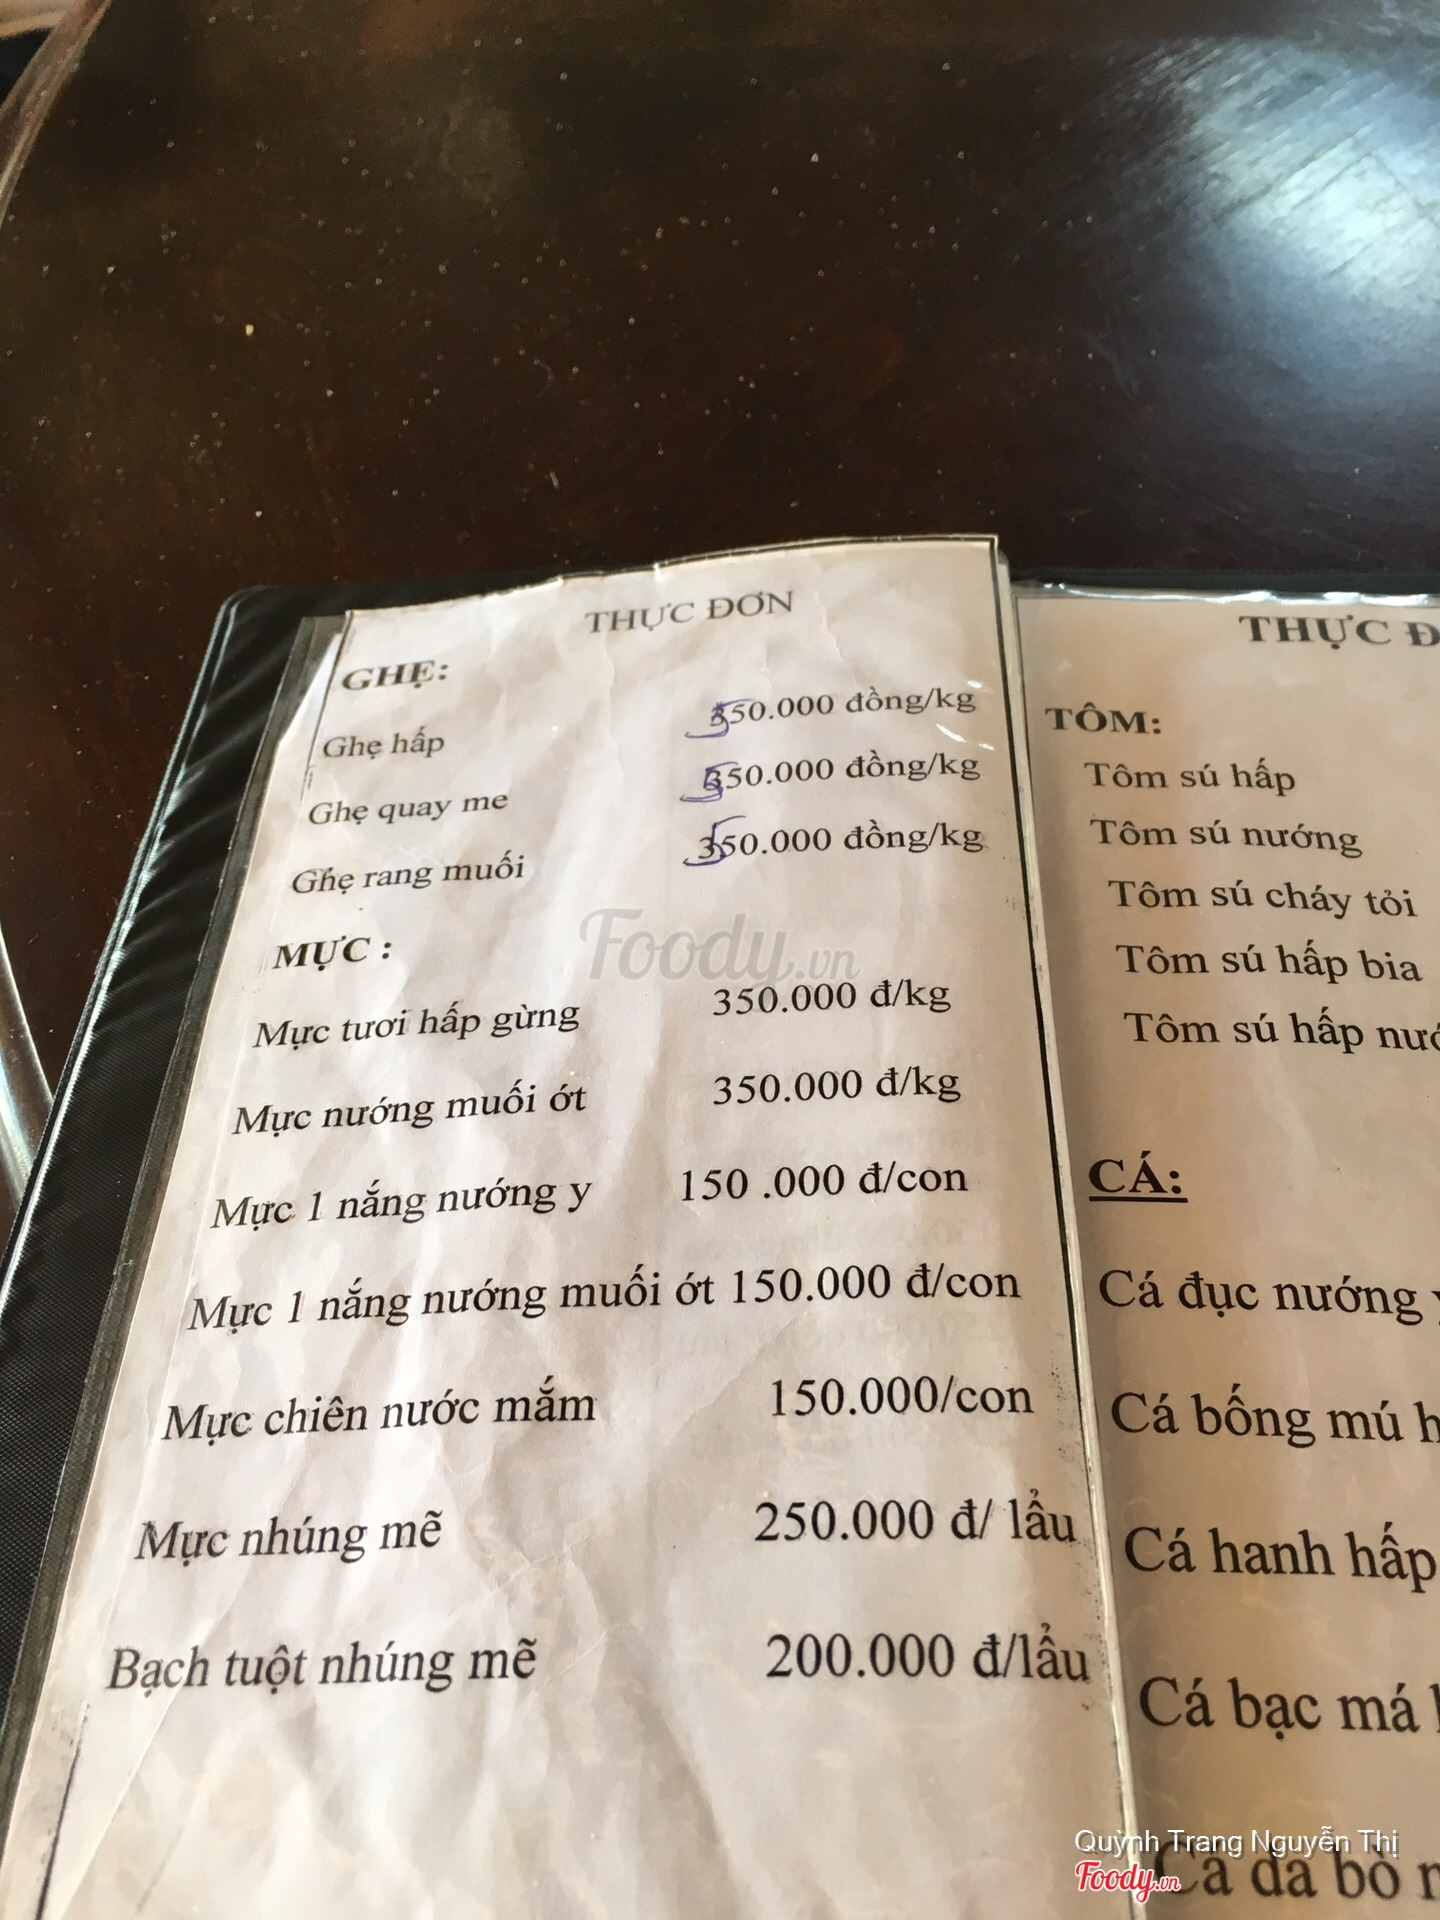 THỰC ĐƠN
GHẸ:
Ghẹ hấp 550.000 đồng/kg
Ghẹ quay me 550.000 đồng/kg
Ghẹ rang muối 550.000 đồng/kg
MỰC :
Mực tươi hấp gừng 350.000 đ/kg
Mực nướng muối ớt 350.000 đ/kg
Mực 1 nắng nướng y 150 .000 đ/con
Mực 1 nắng nướng muối ớt 150.000 đ/con
Mực chiên nước mắm 150.000/con
Mực nhúng mẽ 250.000 đ/ lẩu
Bạch tuột nhúng mẽ 200.000 đ/lẩu
THỰC
TÔM:
Tôm sú hấp
Tôm sú nướng
Tôm sú cháy tỏi
Tôm sú hấp bia
Tôm sú hấp
CÁ:
Cá đục nướng
Cá bống mú
Cá hanh hấp
Cá bạc má
Cá da bò
Foody.vn
Quỳnh Trang Nguyễn Thị
Foody.vn